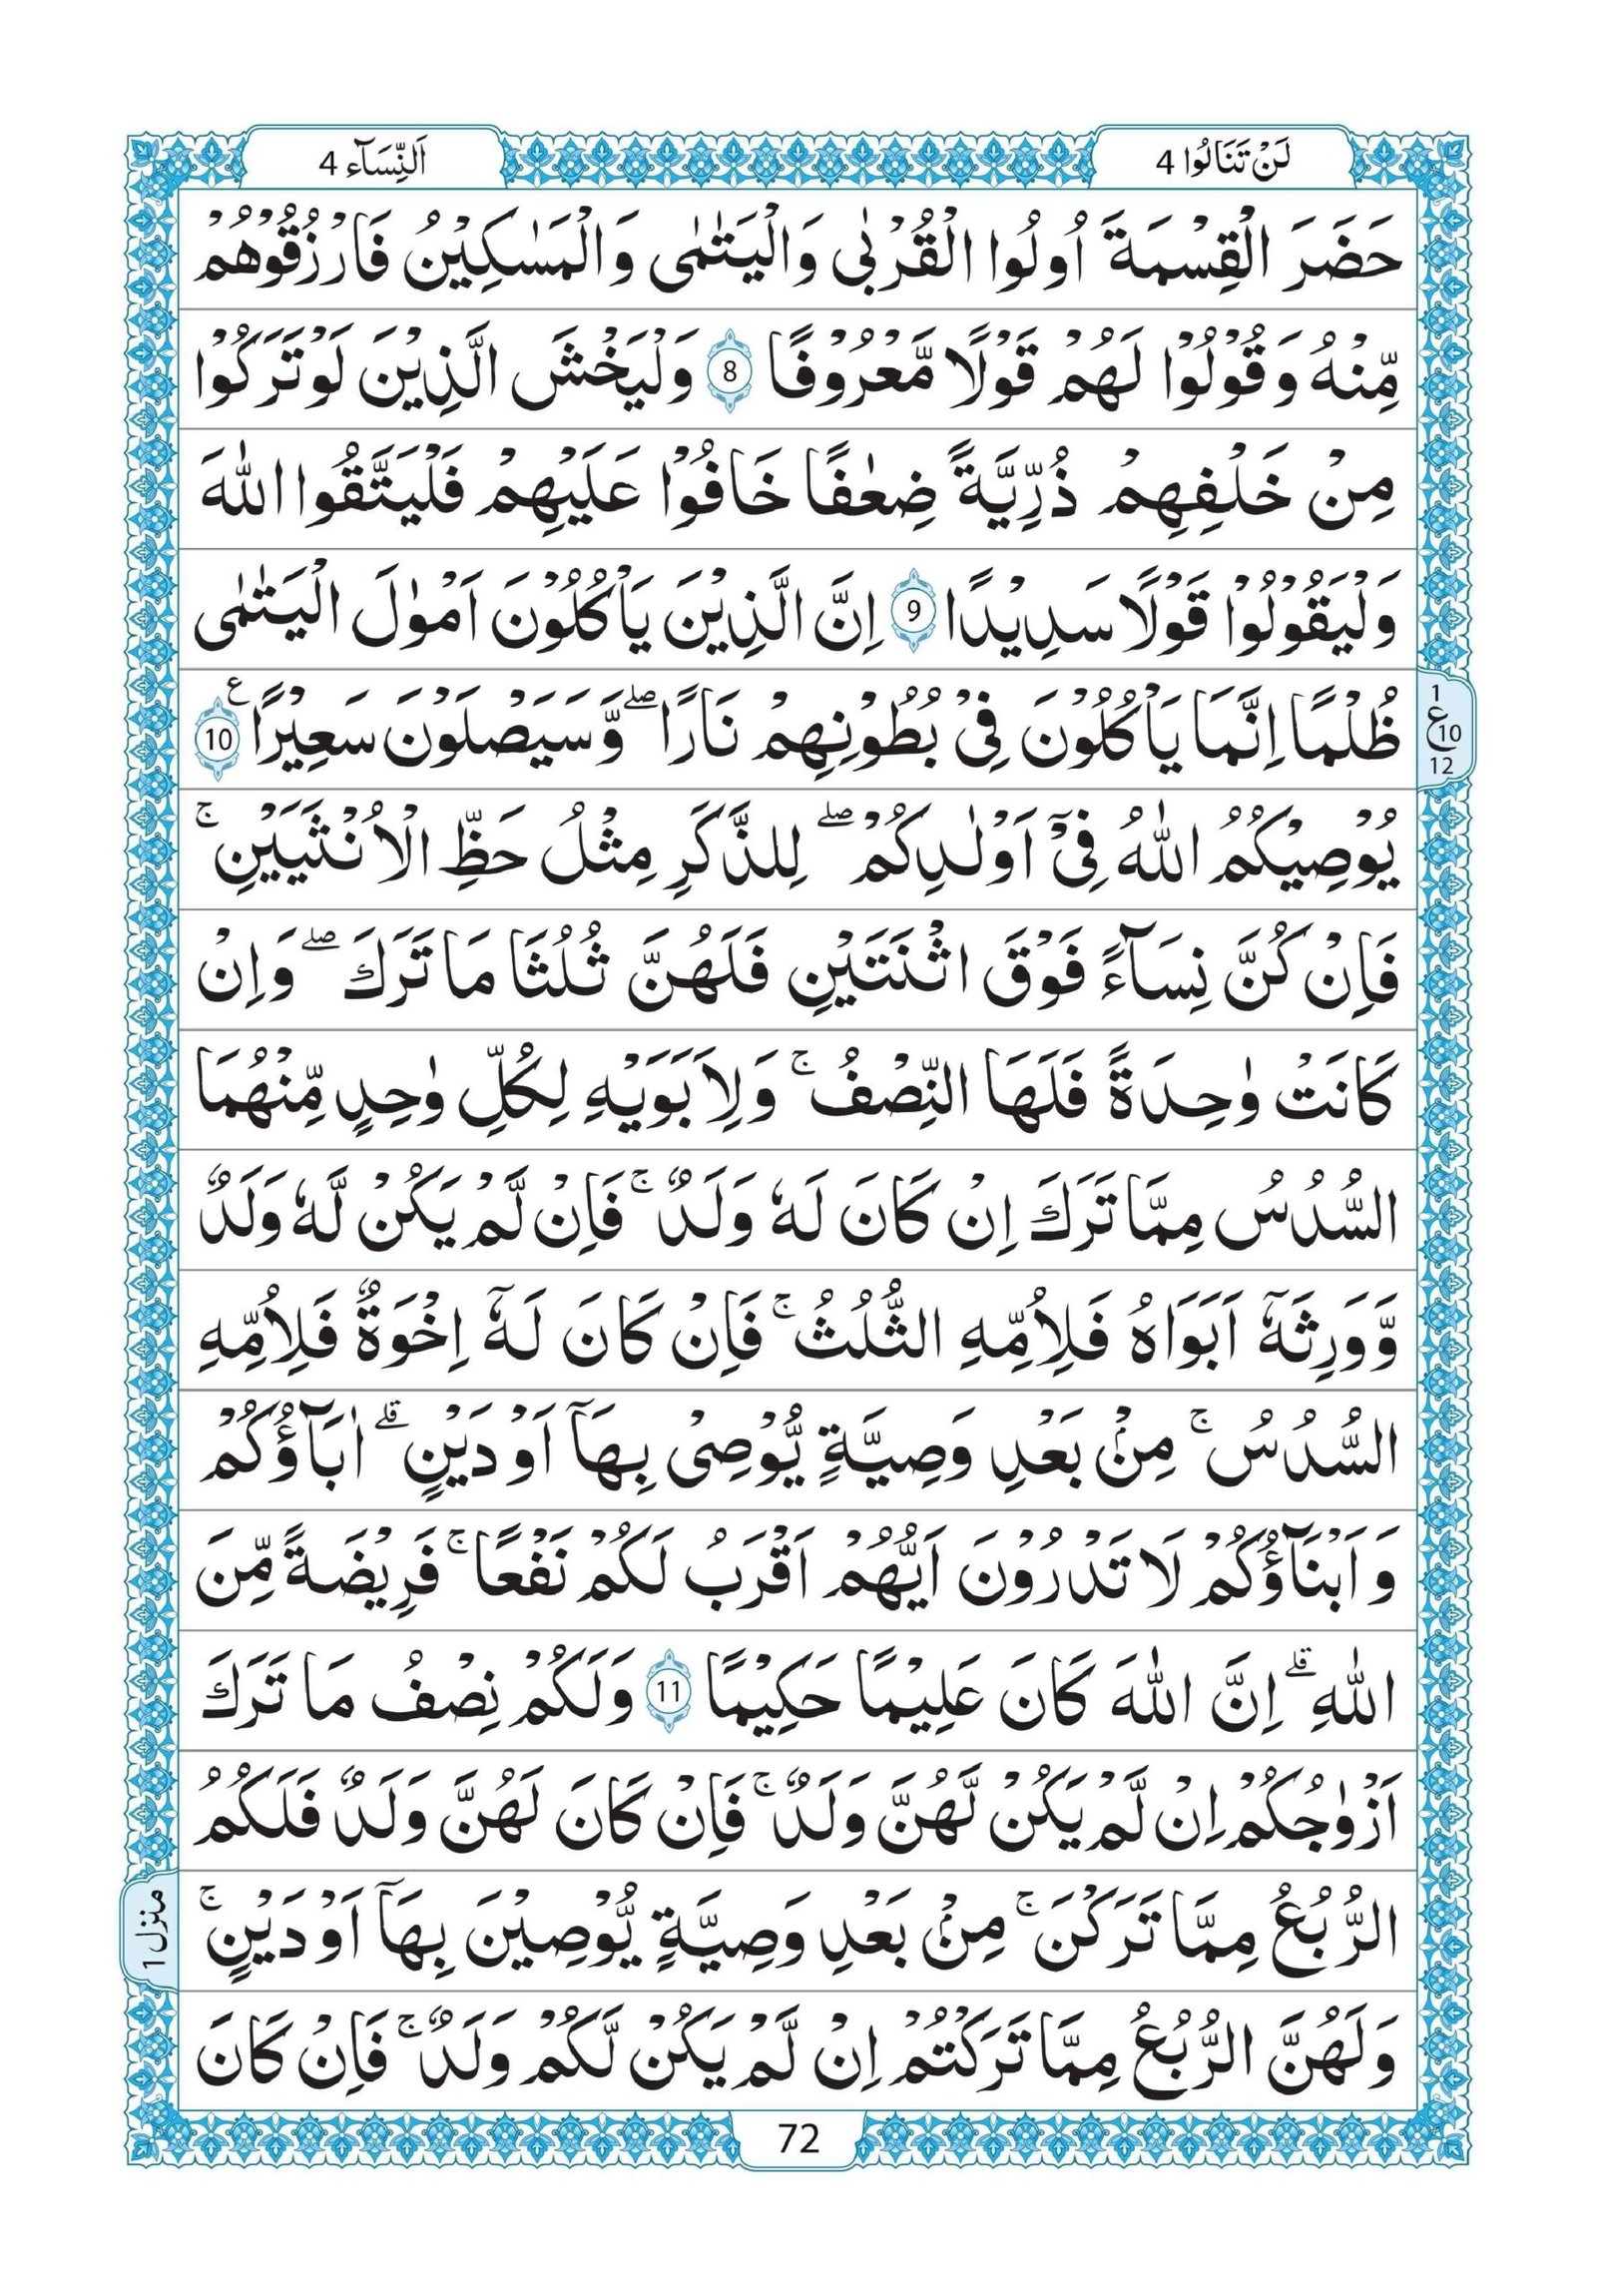 لَنْ تَنَالُوا 4
اَلنِّسَآء 4
حَضَرَ الْقِسْمَةَ اُولُوا الْقُرْبٰى وَالْيَتٰمٰى وَالْمَسٰكِيْنُ فَارْزُقُوْهُمْ
مِّنْهُ وَقُوْلُوْا لَهُمْ قَوْلًا مَّعْرُوْفًا 8 وَلْيَخْشَ الَّذِيْنَ لَوْ تَرَكُوْا
مِنْ خَلْفِهِمْ ذُرِّيَّةً ضِعٰفًا خَافُوْا عَلَيْهِمْ فَلْيَتَّقُوا اللّٰهَ
وَلْيَقُوْلُوْا قَوْلًا سَدِيْدًا 9 اِنَّ الَّذِيْنَ يَاْكُلُوْنَ اَمْوٰلَ الْيَتٰمٰى
ظُلْمًا اِنَّمَا يَاْكُلُوْنَ فِىْ بُطُوْنِهِمْ نَارًا ۖ وَّسَيَصْلَوْنَ سَعِيْرًا ع 10
1
ع 10
12
يُوْصِيْكُمُ اللّٰهُ فِىْٓ اَوْلٰدِكُمْ ۖ لِلذَّكَرِ مِثْلُ حَظِّ الْاُنْثَيَيْنِ ۚ
فَاِنْ كُنَّ نِسَآءً فَوْقَ اثْنَتَيْنِ فَلَهُنَّ ثُلُثَا مَا تَرَكَ ۖ وَاِنْ
كَانَتْ وٰحِدَةً فَلَهَا النِّصْفُ ۚ وَلِاَبَوَيْهِ لِكُلِّ وٰحِدٍ مِّنْهُمَا
السُّدُسُ مِمَّا تَرَكَ اِنْ كَانَ لَهٗ وَلَدٌ ۚ فَاِنْ لَّمْ يَكُنْ لَّهٗ وَلَدٌ
وَّوَرِثَهٗٓ اَبَوَاهُ فَلِاُمِّهِ الثُّلُثُ ۚ فَاِنْ كَانَ لَهٗٓ اِخْوَةٌ فَلِاُمِّهِ
السُّدُسُ ۚ مِنْۢ بَعْدِ وَصِيَّةٍ يُّوْصِىْ بِهَآ اَوْ دَيْنٍ ۗ اٰبَآؤُكُمْ
وَاَبْنَآؤُكُمْ لَا تَدْرُوْنَ اَيُّهُمْ اَقْرَبُ لَكُمْ نَفْعًا ۚ فَرِيْضَةً مِّنَ
اللّٰهِ ۗ اِنَّ اللّٰهَ كَانَ عَلِيْمًا حَكِيْمًا 11 وَلَكُمْ نِصْفُ مَا تَرَكَ
اَزْوٰجُكُمْ اِنْ لَّمْ يَكُنْ لَّهُنَّ وَلَدٌ ۚ فَاِنْ كَانَ لَهُنَّ وَلَدٌ فَلَكُمُ
الرُّبُعُ مِمَّا تَرَكْنَ ۚ مِنْۢ بَعْدِ وَصِيَّةٍ يُّوْصِيْنَ بِهَآ اَوْ دَيْنٍ ۚ
منزل 1
وَلَهُنَّ الرُّبُعُ مِمَّا تَرَكْتُمْ اِنْ لَّمْ يَكُنْ لَّكُمْ وَلَدٌ ۚ فَاِنْ كَانَ
72